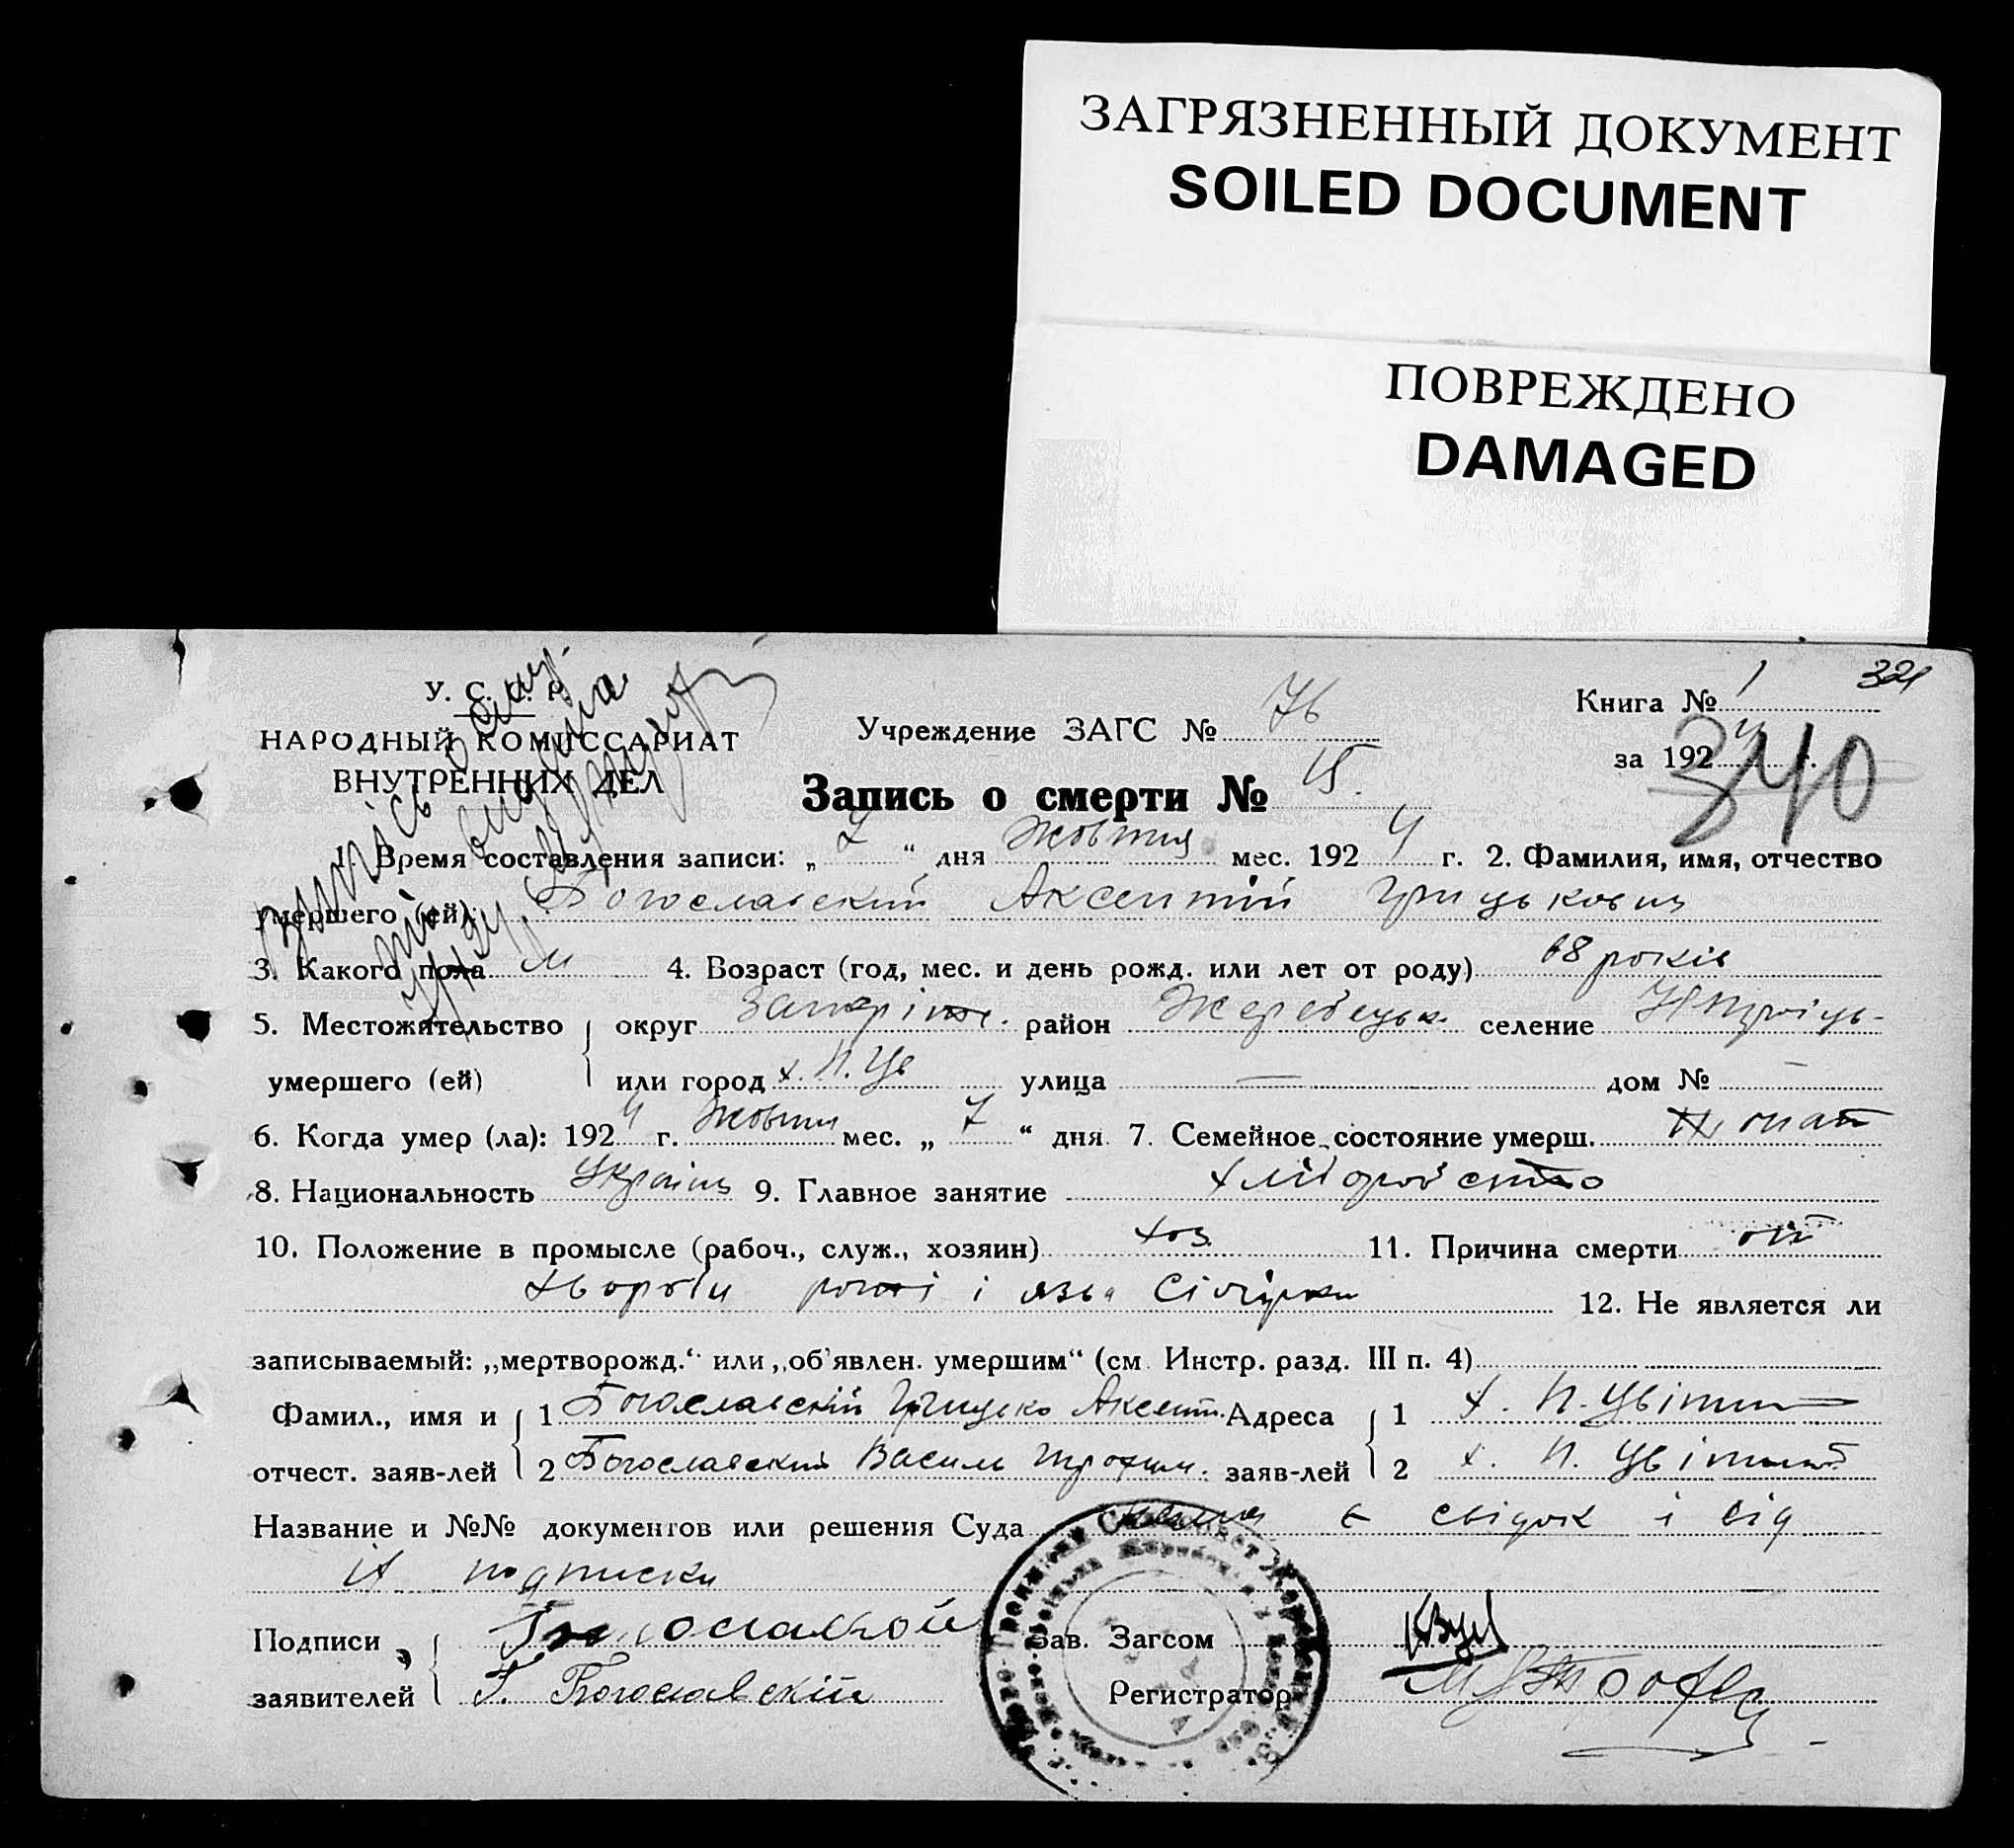 ЗАГРЯЗНЕННЫЙ ДОКУМЕНТ
SOILED DOCUMENT
ПОВРЕЖДЕНО
DAMAGED
321
У. С. С. Р.
НАРОДНЫЙ КОМИССАРИАТ
ВНУТРЕННИХ ДЕЛ
Учреждение ЗАГС № 76
Книга № 1
за 1924 г.
340
Запись о смерти № 15.
1. Время составления записи: „ “ дня жовтня мес. 1924 г. 2. Фамилия, имя, отчество
умершего (ей) Богославский Аксентий Грицькович
3. Какого пола м 4. Возраст (год, мес. и день рожд. или лет от роду) 68 років
5. Местожительство округ Запоріж. район Жеребецьк. селение
умершего (ей) или город х. П. Цв улица — дом № —
6. Когда умер (ла): 1924 г. Жовтн мес. „ 7 “ дня 7. Семейное состояние умерш. жонат
8. Национальность Україн 9. Главное занятие хліборобство
10. Положение в промысле (рабоч., служ., хозяин) хоз. 11. Причина смерти от
хвороби і
12. Не является ли
записываемый: „мертворожд.“ или „об'явлен. умершим“ (см. Инстр. разд. III п. 4)
Фамил., имя и 1 Богославскій Грицько Аксент. Адреса 1 х. П. Цвітни
отчест. заяв-лей 2 Богославский Василь Трохим. заяв-лей 2 х. П. Цвітний
Название и №№ документов или решения Суда є свідок і від
їх подписки
Подписи
заявителей Г. Богославскій
Зав. Загсом
Регистратор